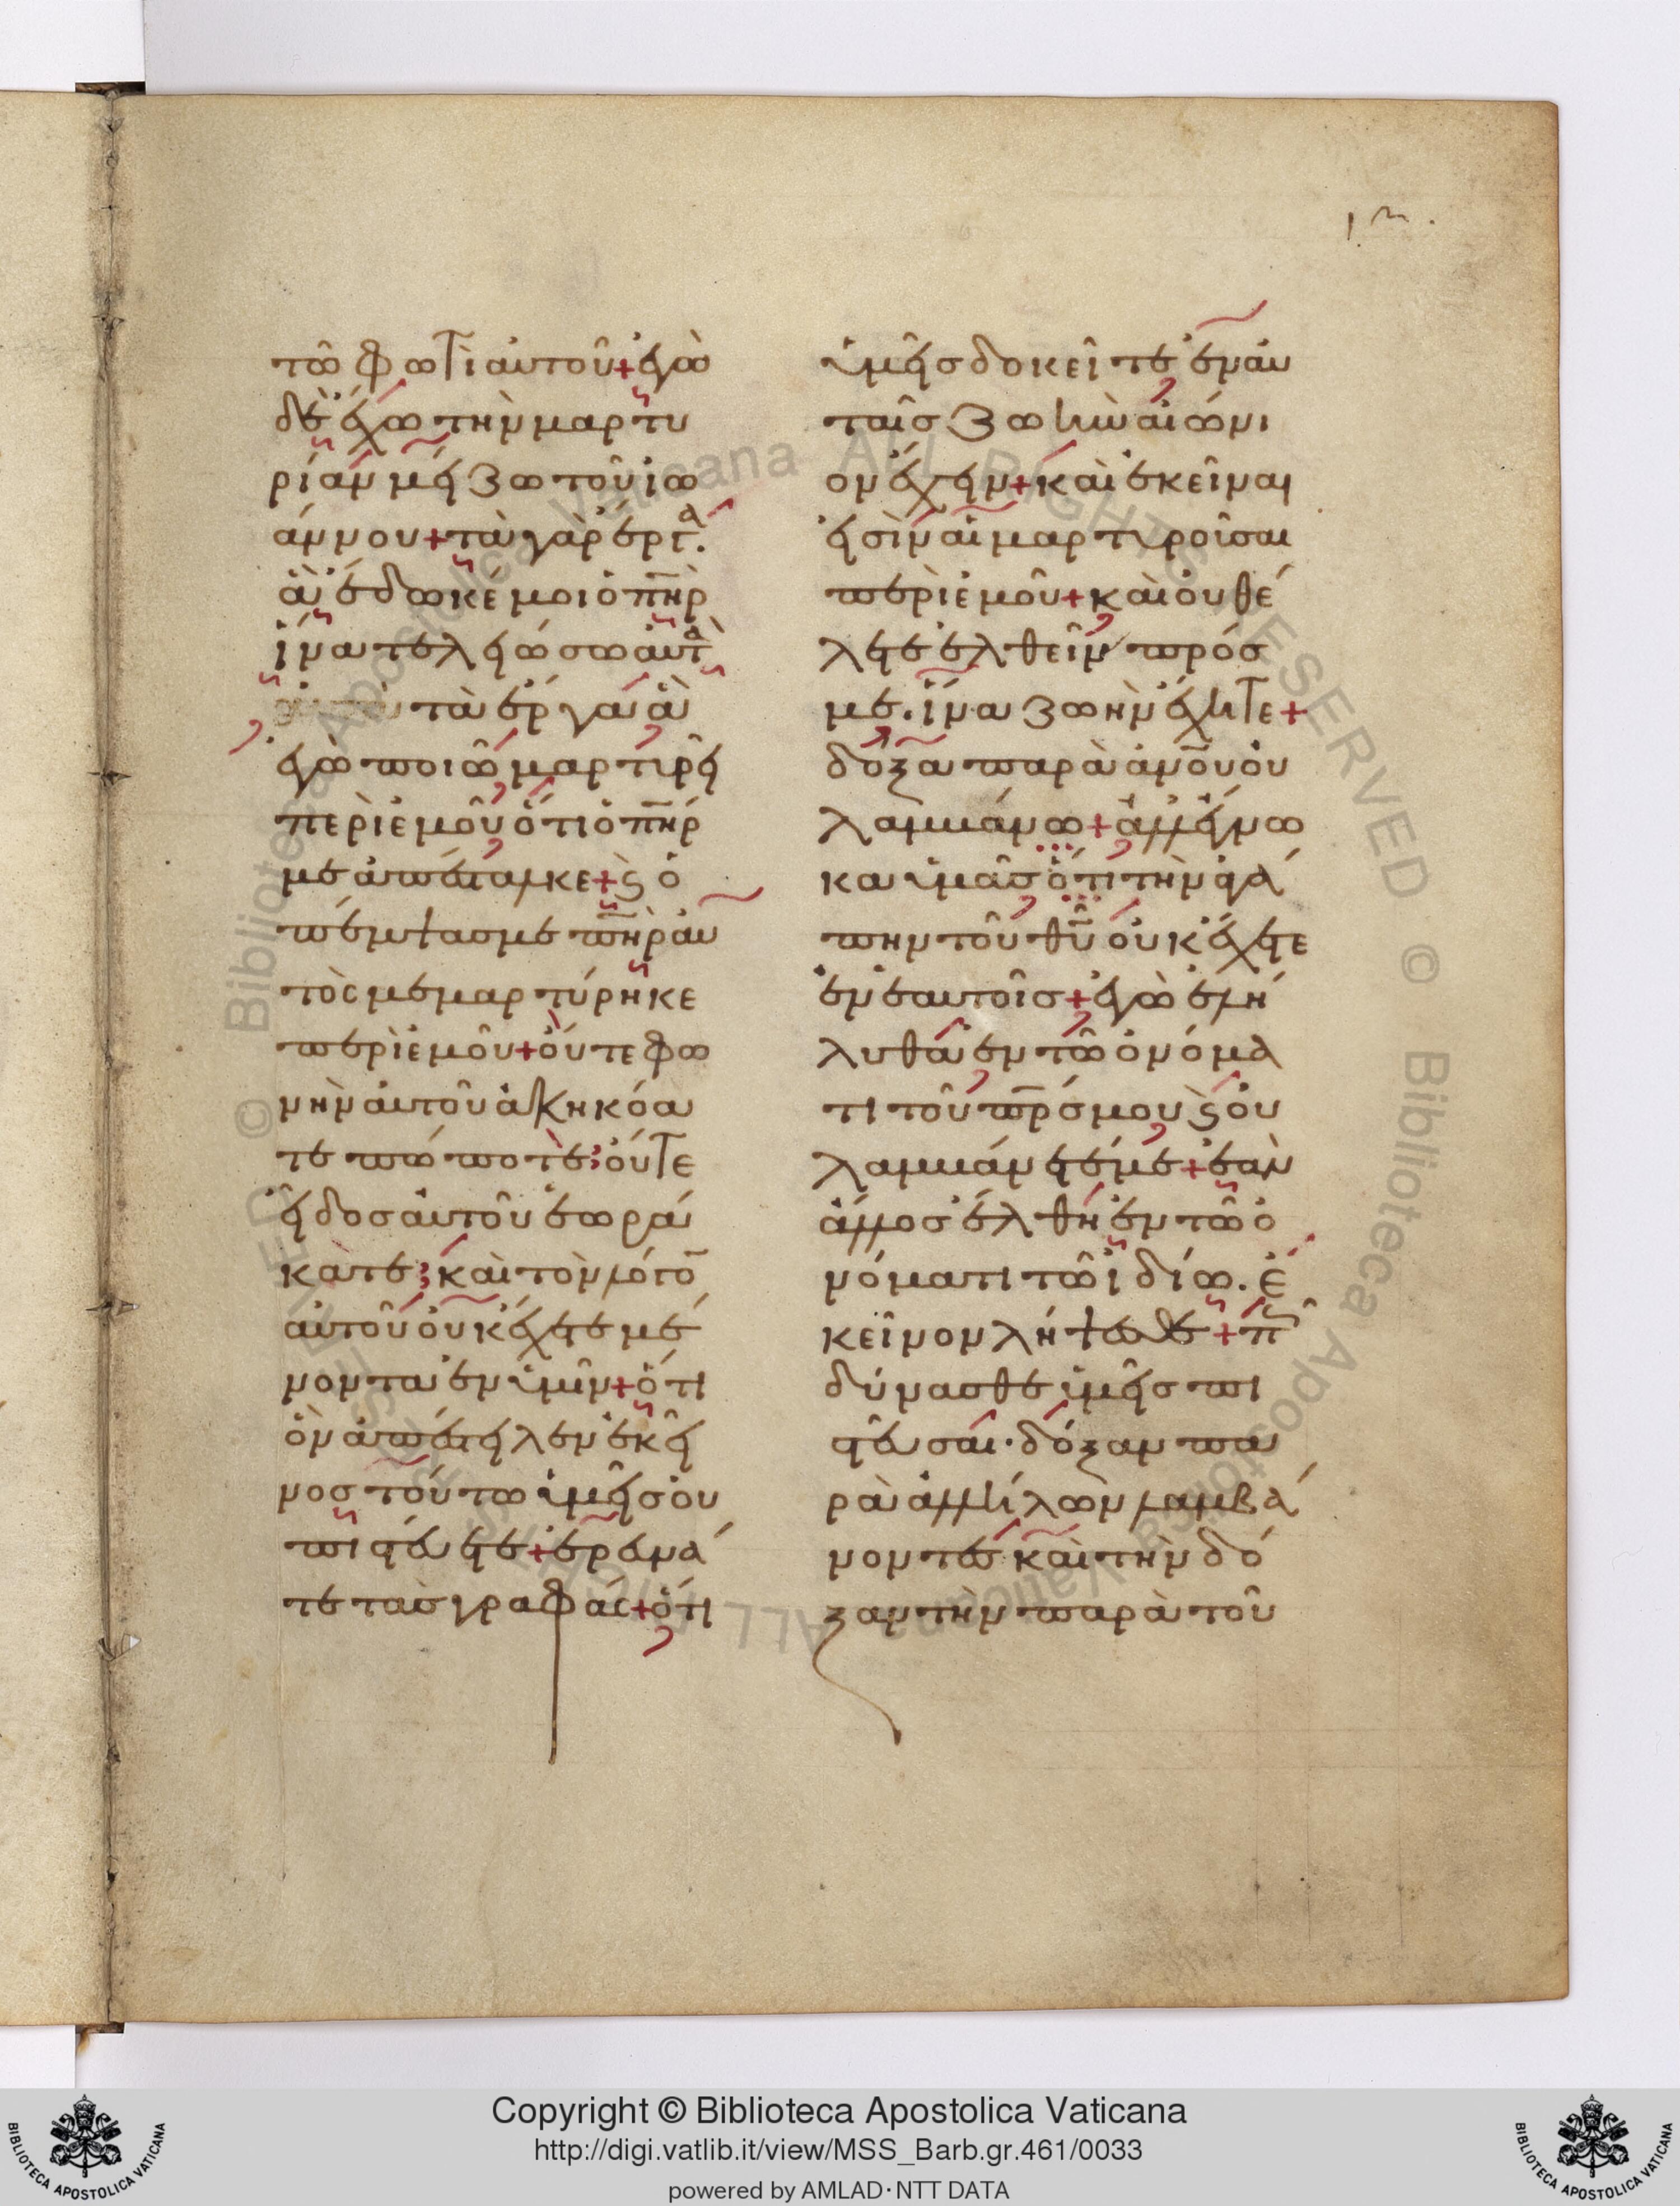 ιη.
τῶ φωτὶ αὐτοῦ + ἐγὼ
δὲ ἔχω τὴν μαρτυ
ρίαν μείζω τοῦ ἰω
άννου + τὰ γὰρ ἔργα.
ἃ ἔδωκέ μοι ὁ πηρ
ἵνα τελειώσω αὐτὰ
τὰ ἔργα ἃ
ἐγὼ ποιῶ μαρτυρεῖ
περὶ ἐμοῦ ὅτι ὁ πηρ
με ἀπέσταλκε + ϗ ὁ
πέμψας με πηρ αὐ
τὸς μεμαρτύρηκε
περὶ ἐμοῦ + οὔτε φω
νὴν αὐτοῦ ἀκηκόα
τε πώποτε; οὔτε
εἶδος αὐτοῦ ἑωρά
κατε; καὶ τὸν λόγο
αὐτοῦ οὐκ ἔχετε μέ
νοντα ἐν ὑμῖν + ὅτι
ὃν ἀπέστειλεν ἐκεῖ
νος τούτω ὑμεῖς οὐ
πιστεύετε + ἐρευνᾶ
τε τὰς γραφάς + ὅτι
ὑμεῖς δοκεῖτε ἐν αὐ
ταῖς ζωὴν αἰώνι
ον ἔχειν + καὶ ἐκεῖναι
εἰσὶν αἱ μαρτυροῦσαι
περὶ ἐμοῦ + καὶ οὐ θέ
λετε ἐλθεῖν πρός
με. ἵνα ζωὴν ἔχητε +
δόξα παρὰ ἀνου οὐ
λαμβάνω + ἀλλ' ἔγνω
κα ὑμᾶς ὅτι τὴν ἀγά
πην τοῦ θυ οὐκ ἔχετε
ἐν ἑαυτοῖς + ἐγὼ ἐλή
λυθα ἐν τῶ ὀνόμα
τι τοῦ πρς μου ϗ οὐ
λαμβάνετέ με + ἐὰν
ἄλλος ἔλθη ἐν τῶ ὀ
νόματι τῶ ἰδίω. ἐ
κεῖνον λήψεσθε + π
δύνασθε ὑμεῖς πι
στεῦσαι. δόξαν πα
ρὰ ἀλλήλων λαμβά
νοντες καὶ τὴν δό
ξαν τὴν παρὰ τοῦ
Copyright © Biblioteca Apostolica Vaticana
http://digi.vatlib.it/view/MSS_Barb.gr.461/0033
powered by AMLAD·NTT DATA